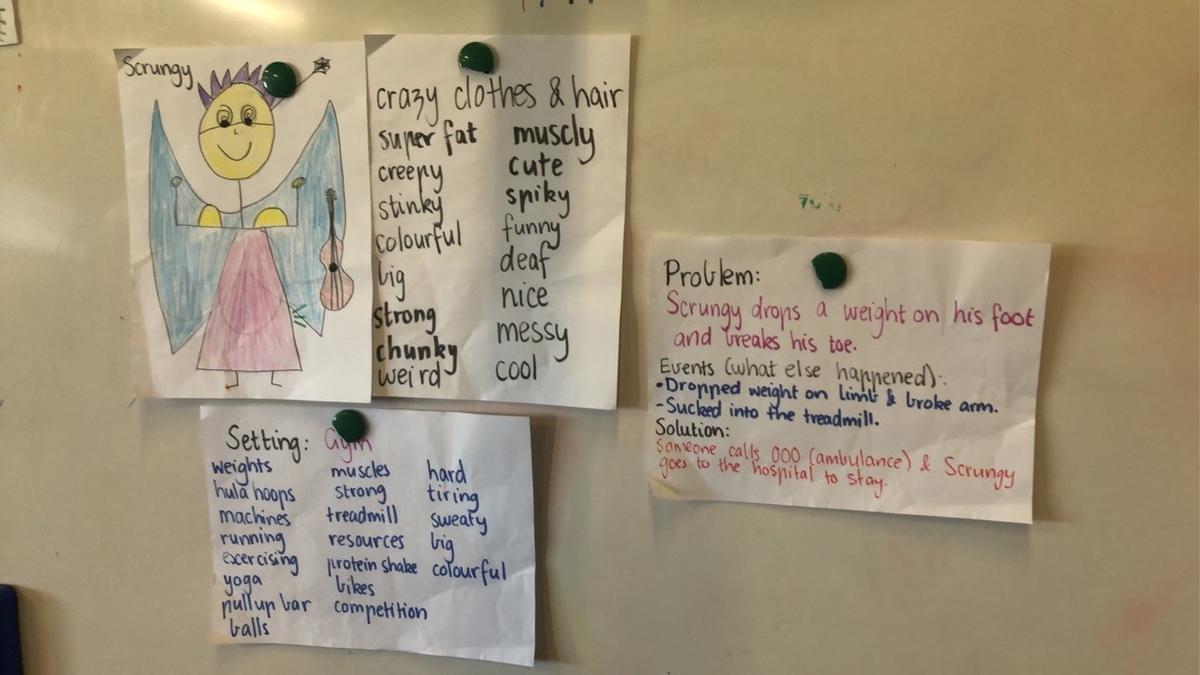 Scrungy
crazy clothes & hair
super fat muscly
creepy cute
stinky spiky
colourful funny
big deaf
strong nice
chunky messy
weird cool
Setting: Gym
weights muscles hard
hula hoops strong tiring
machines treadmill sweaty
running resources big
exercising protein shake colourful
yoga bikes
pull up bar competition
balls
Problem:
Scrungy drops a weight on his foot
and breaks his toe.
Events (what else happened):
-Dropped weight on limb & broke arm.
-Sucked into the treadmill.
Solution:
Someone calls 000 (ambulance) & Scrungy
goes to the hospital to stay.